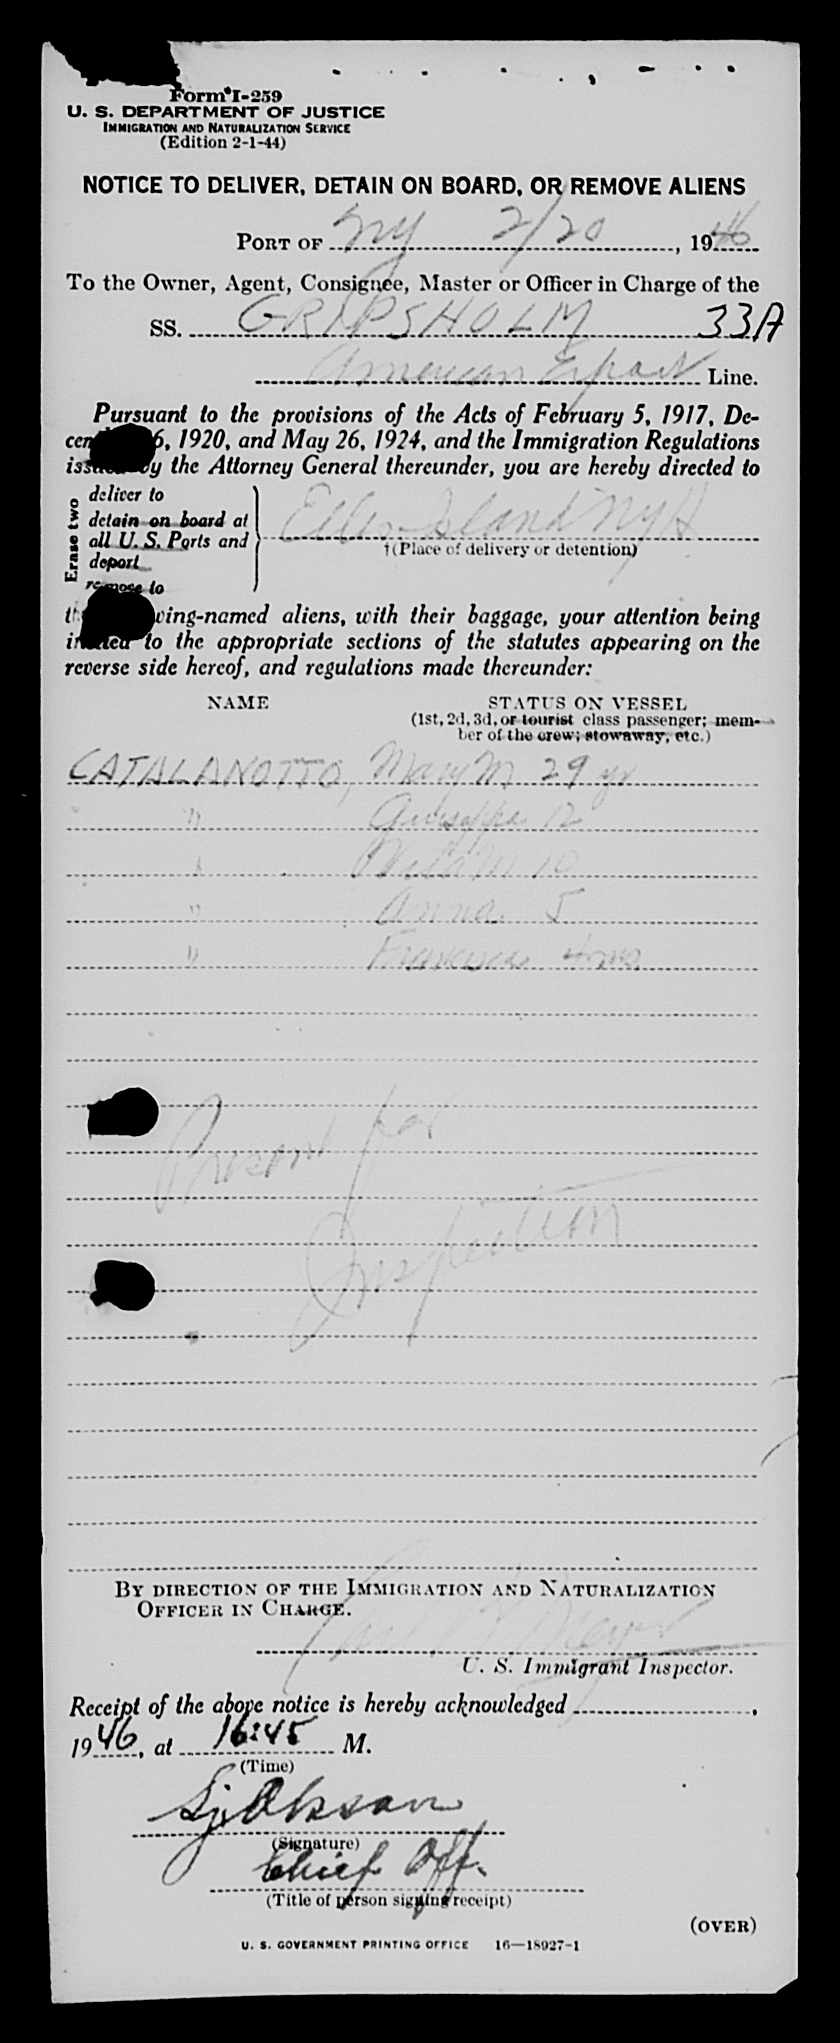 Form I-259
U. S. DEPARTMENT OF JUSTICE
IMMIGRATION AND NATURALIZATION SERVICE
(Edition 2-1-44)
NOTICE TO DELIVER, DETAIN ON BOARD, OR REMOVE ALIENS
PORT OF NY 2/20, 1946
To the Owner, Agent, Consignee, Master or Officer in Charge of the
SS. GRIPSHOLM 33A
American Export Line.
Pursuant to the provisions of the Acts of February 5, 1917, De-
6, 1920, and May 26, 1924, and the Immigration Regulations
by the Attorney General thereunder, you are hereby directed to
Erase two
deliver to
detain on board at
all U. S. Ports and
deport
remove to
Ellis Island NYH
†(Place of delivery or detention)
wing-named aliens, with their baggage, your attention being
to the appropriate sections of the statutes appearing on the
reverse side hereof, and regulations made thereunder:
NAME STATUS ON VESSEL
(1st, 2d, 3d, or tourist class passenger; mem-
ber of the crew; stowaway, etc.)
CATALANOTTO, Mary M 29 yr
" 12
" 10
" Anna 5
" Francesca 4 mos
Present for
Inspection
BY DIRECTION OF THE IMMIGRATION AND NATURALIZATION
OFFICER IN CHARGE.
U. S. Immigrant Inspector.
Receipt of the above notice is hereby acknowledged
1946, at 16:45 M.
(Time)
(Signature)
Chief Off.
(Title of person signing receipt)
(OVER)
U. S. GOVERNMENT PRINTING OFFICE 16—18927-1